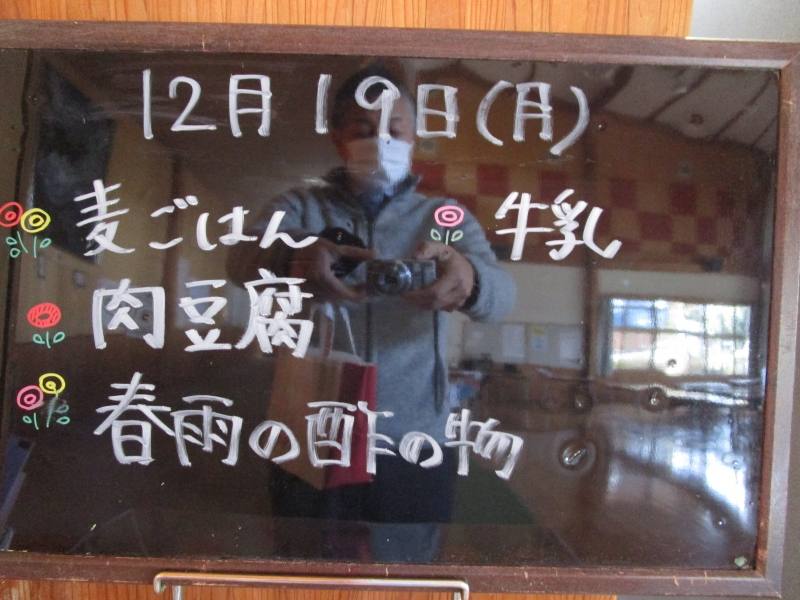 12月19日(月)
麦ごはん 牛乳
肉豆腐
春雨の酢の物